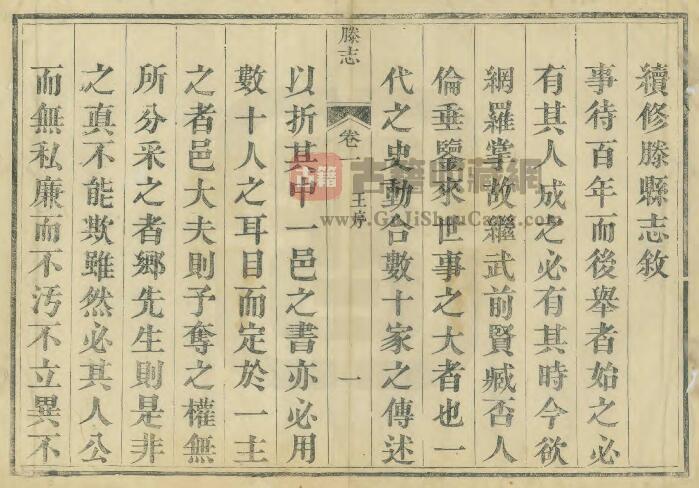 續修滕縣志敘
事待百年而後舉者始之必
有其人成之必有其時今欲
網羅掌故繼武前賢臧否人
倫垂鑒來世事之大者也一
代之史動合數十家之傳述
滕志
卷一
王序
一
以折其中一邑之書亦必用
數十人之耳目而定於一主
之者邑大夫則予奪之權無
所分采之者鄉先生則是非
之真不能欺雖然必其人公
而無私廉而不污不立異不
古籍
古籍收藏網
www.GuJiShouCang.com